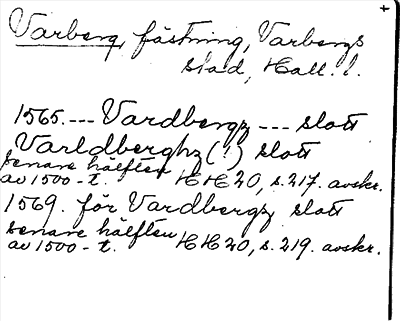 Varberg, fästning, Varbergs
stad, Hall. l.
1565. --- Vardbergz --- slott
Varldberghz (!) slott
senare hälften
av 1500-t. HH 20, s. 217. avskr.
1569. för Vardbergz slott
senare hälften
av 1500-t. HH 20, s. 219. avskr.